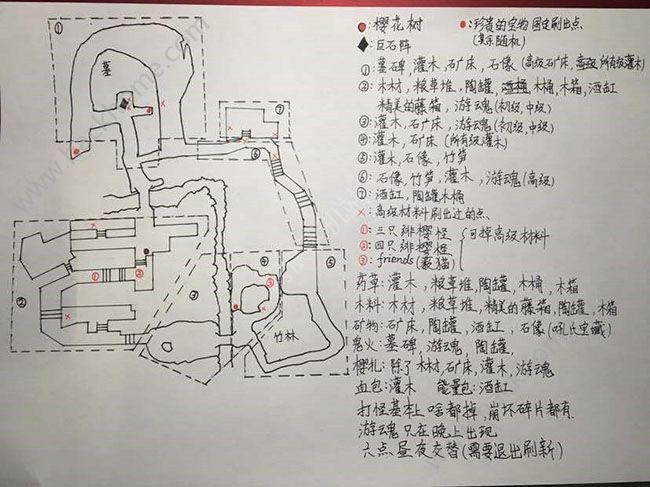 ：樱花树
：珍贵的宝物 固定刷出点
(其余随机)
：巨石阵
①：墓碑，灌木，矿床，石像(高级矿床，高级所有级灌木)
②：木材，粮草堆，陶罐，酒桶，木桶，木箱，酒缸
精美的藤箱，游魂(初级，中级)
③：灌木，矿床，游魂(初级，中级)
④：灌木，矿床(所有级灌木)
⑤：灌木，石像，竹笋
⑥：石像，竹笋，灌木，游魂(高级)
⑦：酒缸，陶罐木桶
×：高级材料刷出过的点.
①：三只绯樱怪
②：四只绯樱怪
③：friends(薮猫)
可掉高级材料
药草：灌木，粮草堆，陶罐，木桶，木箱
木料：木材，粮草堆，精美的藤箱，陶罐，木箱
矿物：石床，陶罐，酒缸，石像(吼氏宝藏)
鬼火：墓碑，游魂，陶罐，
樱札：除了木材，矿床，灌木，游魂
血包：灌木 能量包：酒缸
打怪基本上啥都掉，崩坏碎片都有
游魂只在晚上出现
六点昼夜交替(需要退出刷新)
①
墓
⑦
⑥
②
①
③
②
③
④
③
⑤
竹林